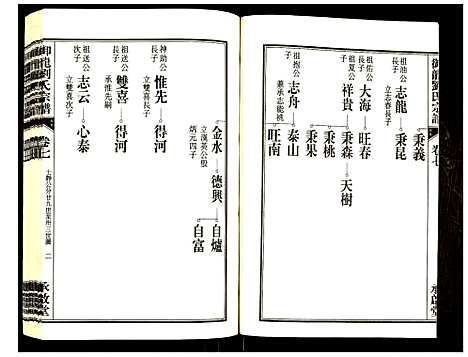 御龍劉氏宗譜
卷七
承啟堂
秉義
祖油公長子
立志春長子
志龍
秉昆
祖佑公長子
大海
旺春
祖夏公長子
祥貴
秉森
天樹
秉桃
秉果
祖抱公次子
兼承志能祧
志舟
泰山
旺南
金水
立漢英公股
炳元四子
德興
自爐
自富
神助公長子
惟先
得河
立雙喜長子
祖送公長子
雙喜
得河
承惟先嗣
祖送公次子
志云
心泰
立雙喜次子
御龍劉氏宗譜
卷七
七靜公分廿九世至卅三世圖
二
承啟堂